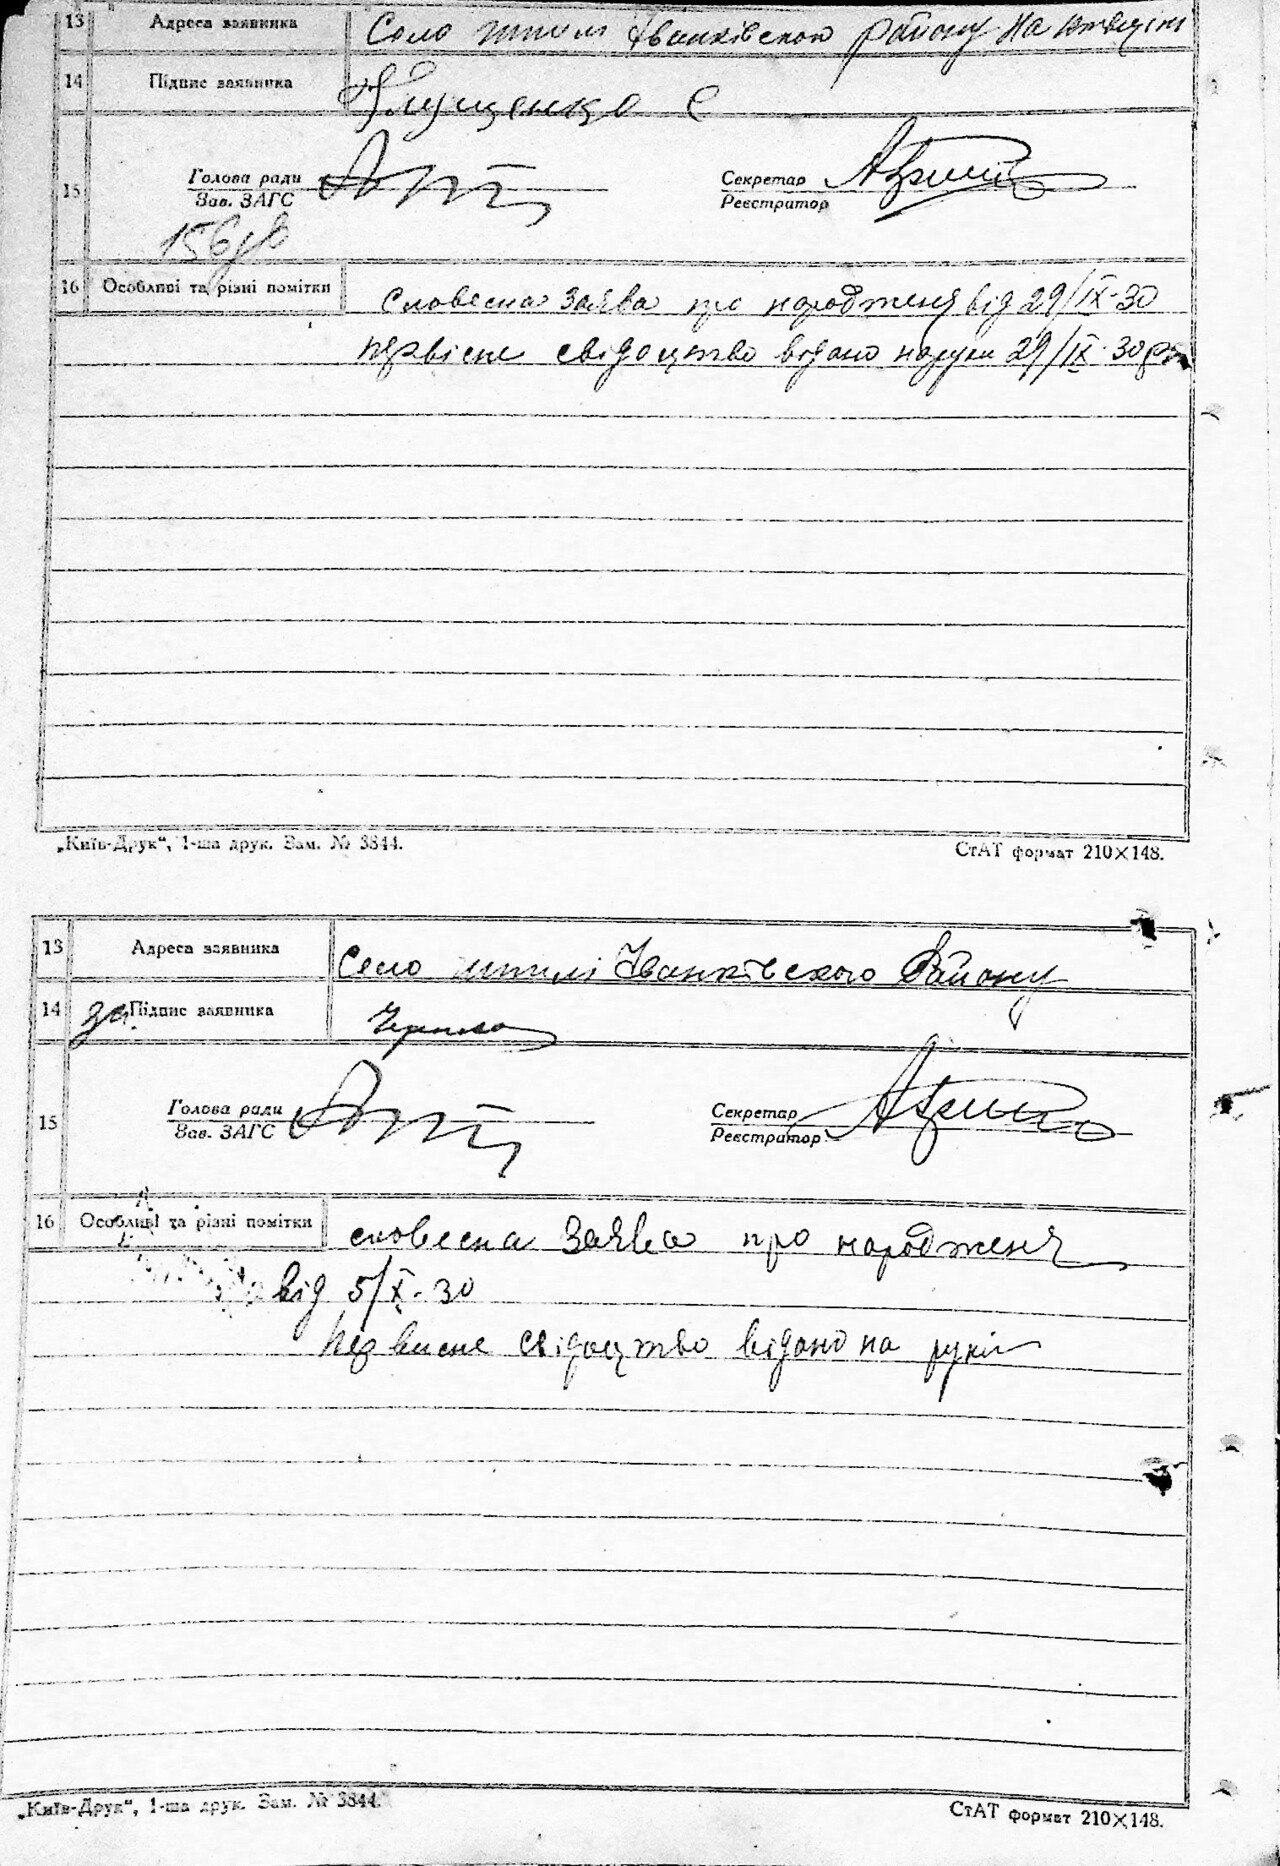 13 Адреса заявника Село Іванківского району на
14 Підпис заявника Глущенко Є
15 Голова ради Секретар
Зав. ЗАГС Реєстратор
16 Особливі та різні помітки Словесна заява про народженя від 29/IX-30
первісне свідоцтво видано на руки 29/IX-30р
„Київ-Друк“, 1-ша друк. Зам. № 3844. СтАТ формат 210×148.
13 Адреса заявника Село Іванківского Району
14 за Підпис заявника
15 Голова ради Секретар
Зав. ЗАГС Реєстратор
16 Особливі та різні помітки словесна заява про народженя
від 5/X-30
Первисне свідоцтво відано на руки
„Київ-Друк“, 1-ша друк. Зам. № 3844. СтАТ формат 210×148.